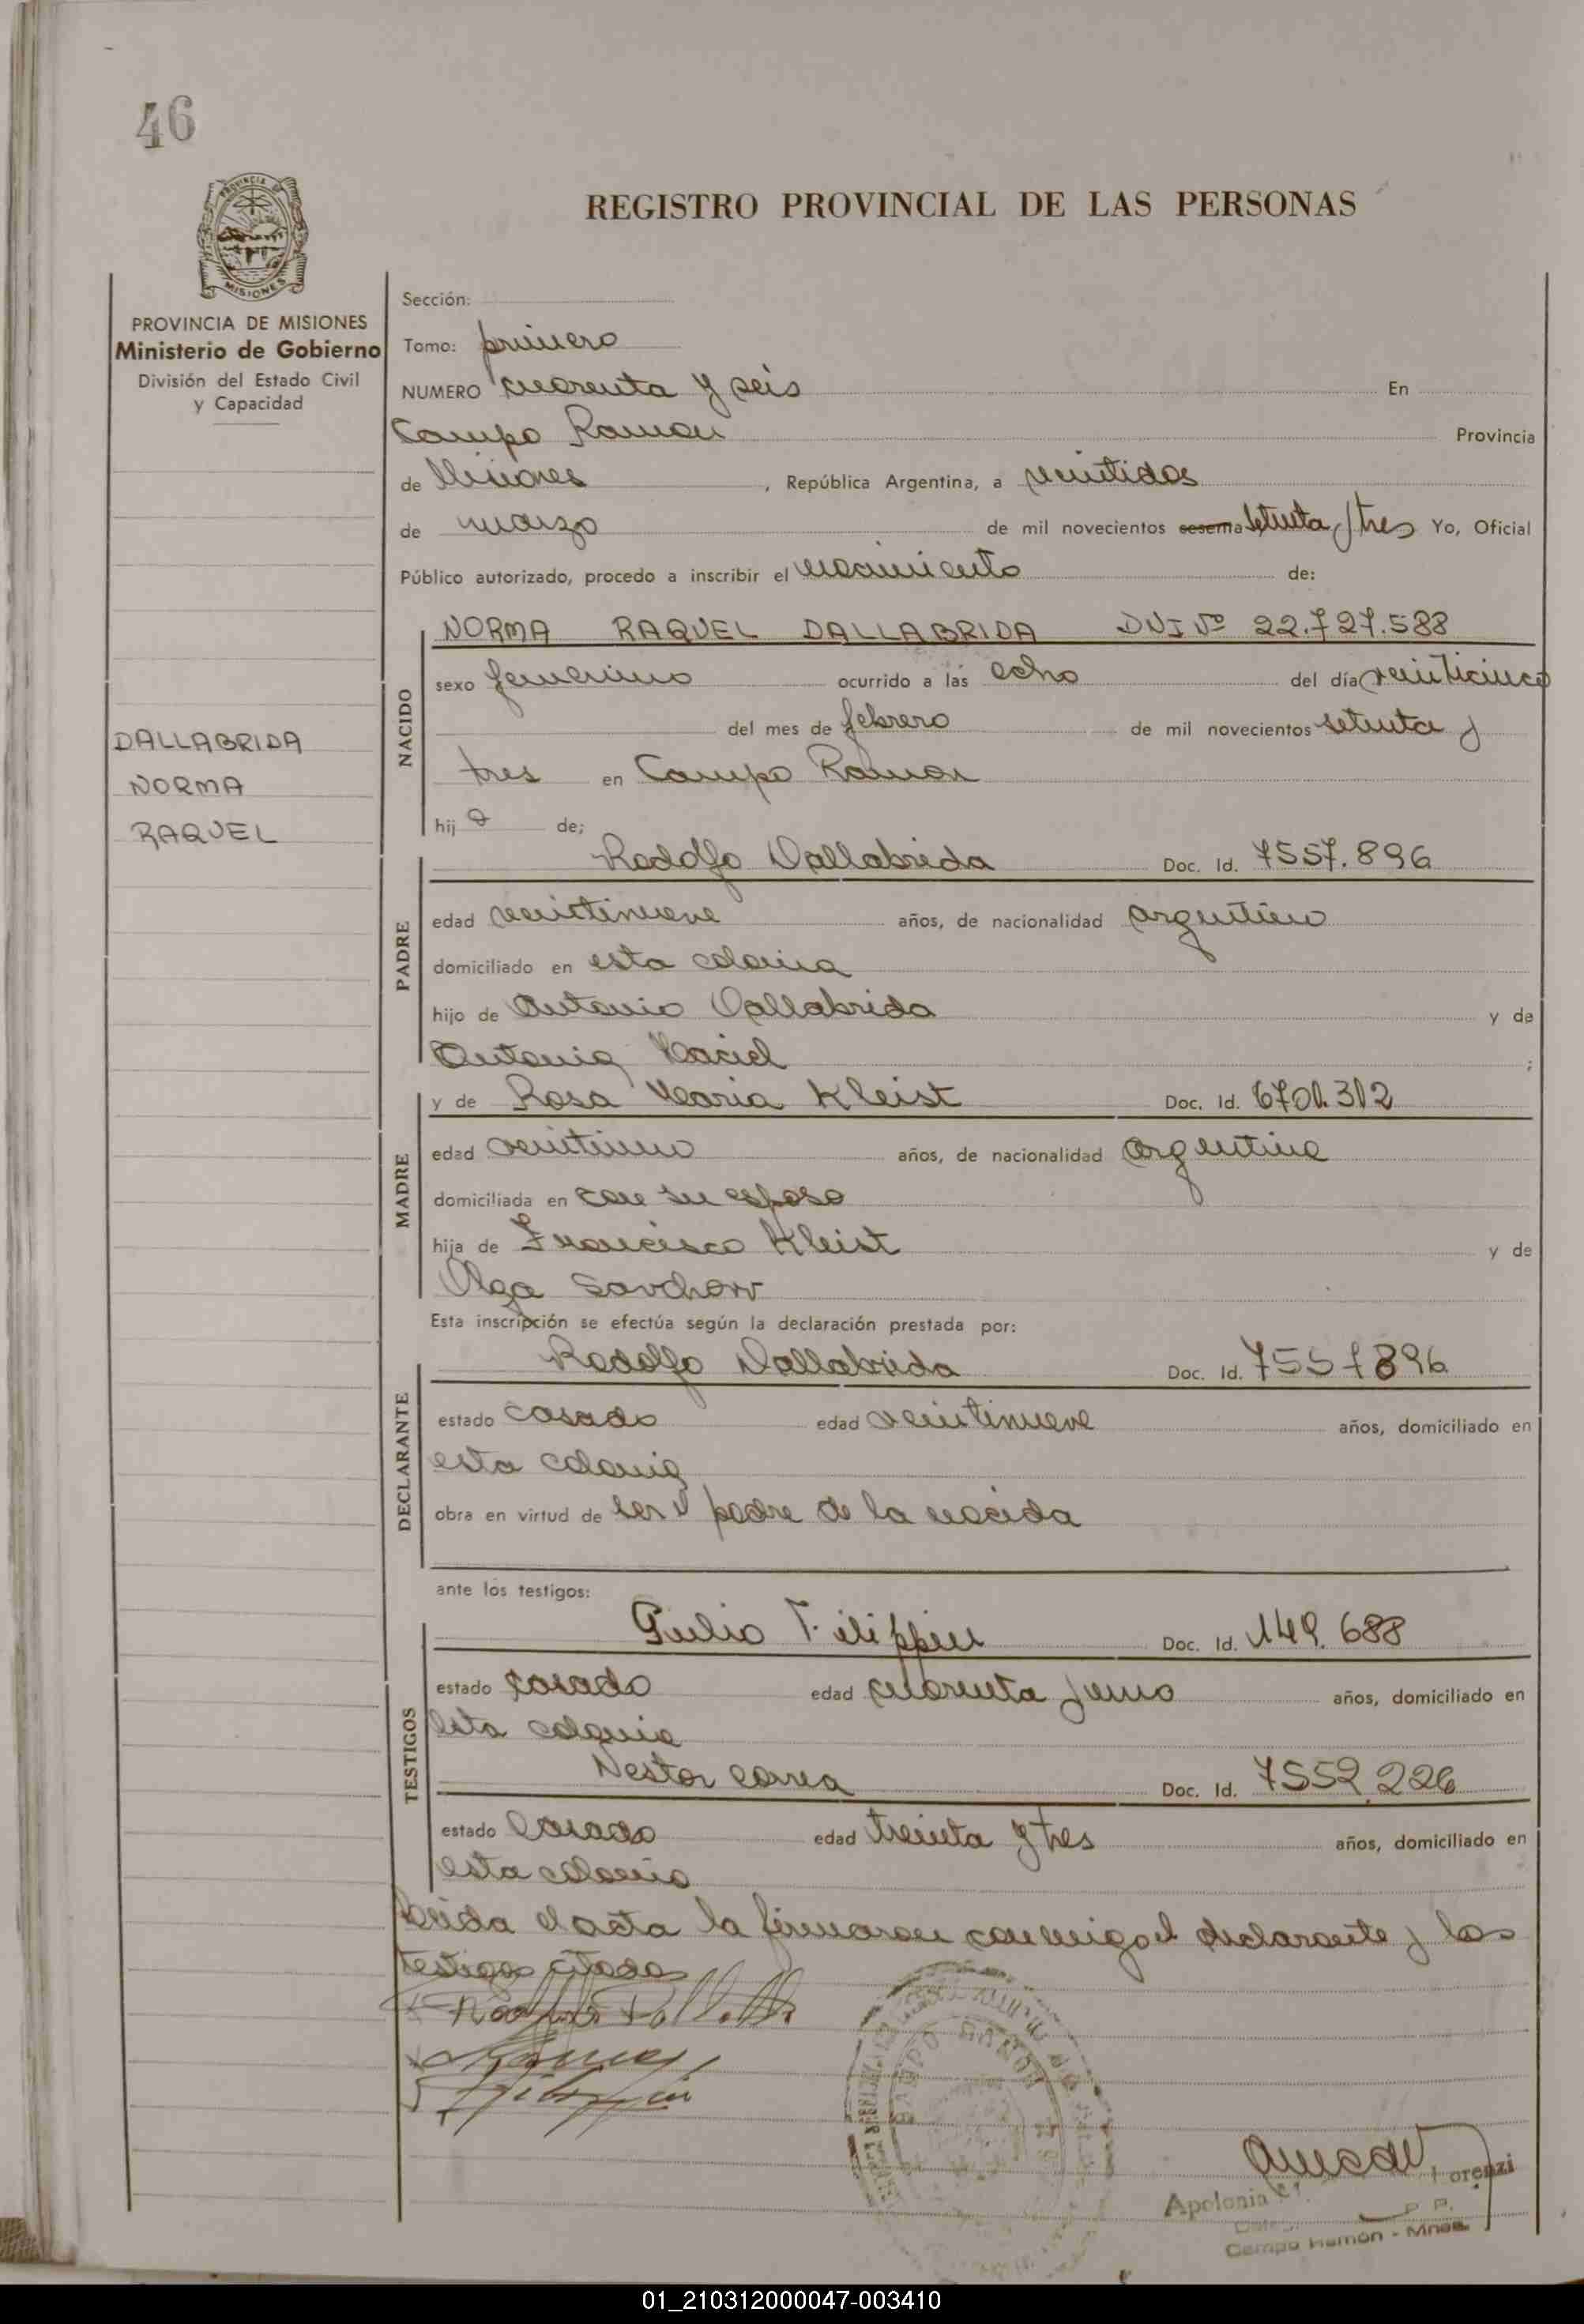 46
PROVINCIA DE
MISIONES
REGISTRO PROVINCIAL DE LAS PERSONAS
PROVINCIA DE MISIONES
Ministerio de Gobierno
División del Estado Civil
y Capacidad
DALLABRIDA
NORMA
RAQUEL
Sección:
Tomo: primero
NUMERO cuarenta y seis En
Campo Ramon Provincia
de Misiones, República Argentina, a veintidos
de marzo de mil novecientos sesenta setenta y tres Yo, Oficial
Público autorizado, procedo a inscribir el nacimiento de:
NACIDO
NORMA RAQUEL DALLABRIDA DNI Nº 22.727.588
sexo femenino ocurrido a las ocho del día veinticinco
del mes de febrero de mil novecientos setenta y
tres en Campo Ramon
hija de;
PADRE
Rodolfo Dallabrida Doc. Id. 7557.896
edad veintinueve años, de nacionalidad argentino
domiciliado en esta colonia
hijo de Antonio Dallabrida y de
Antonia Maciel ;
MADRE
y de Rosa Maria Kleist Doc. Id. 6701.312
edad veintiuno años, de nacionalidad argentina
domiciliada en con su esposo
hija de Francisco Kleist y de
Olga Savchow .
Esta inscripción se efectúa según la declaración prestada por:
DECLARANTE
Rodolfo Dallabrida Doc. Id. 7557896
estado casado edad veintinueve años, domiciliado en
esta colonia
obra en virtud de ser padre de la nacida
ante los testigos:
TESTIGOS
Julio Filippin Doc. Id. 149.688
estado casado edad cuarenta y uno años, domiciliado en
esta colonia
Nestor Correa Doc. Id. 7552.226
estado casado edad treinta y tres años, domiciliado en
esta colonia
Leida el acta la firmaron conmigo el declarante y los
testigos citados
CAMPO RAMON
Apolonia Lorenzi
Campo Ramón - Mnes.
01_210312000047-003410